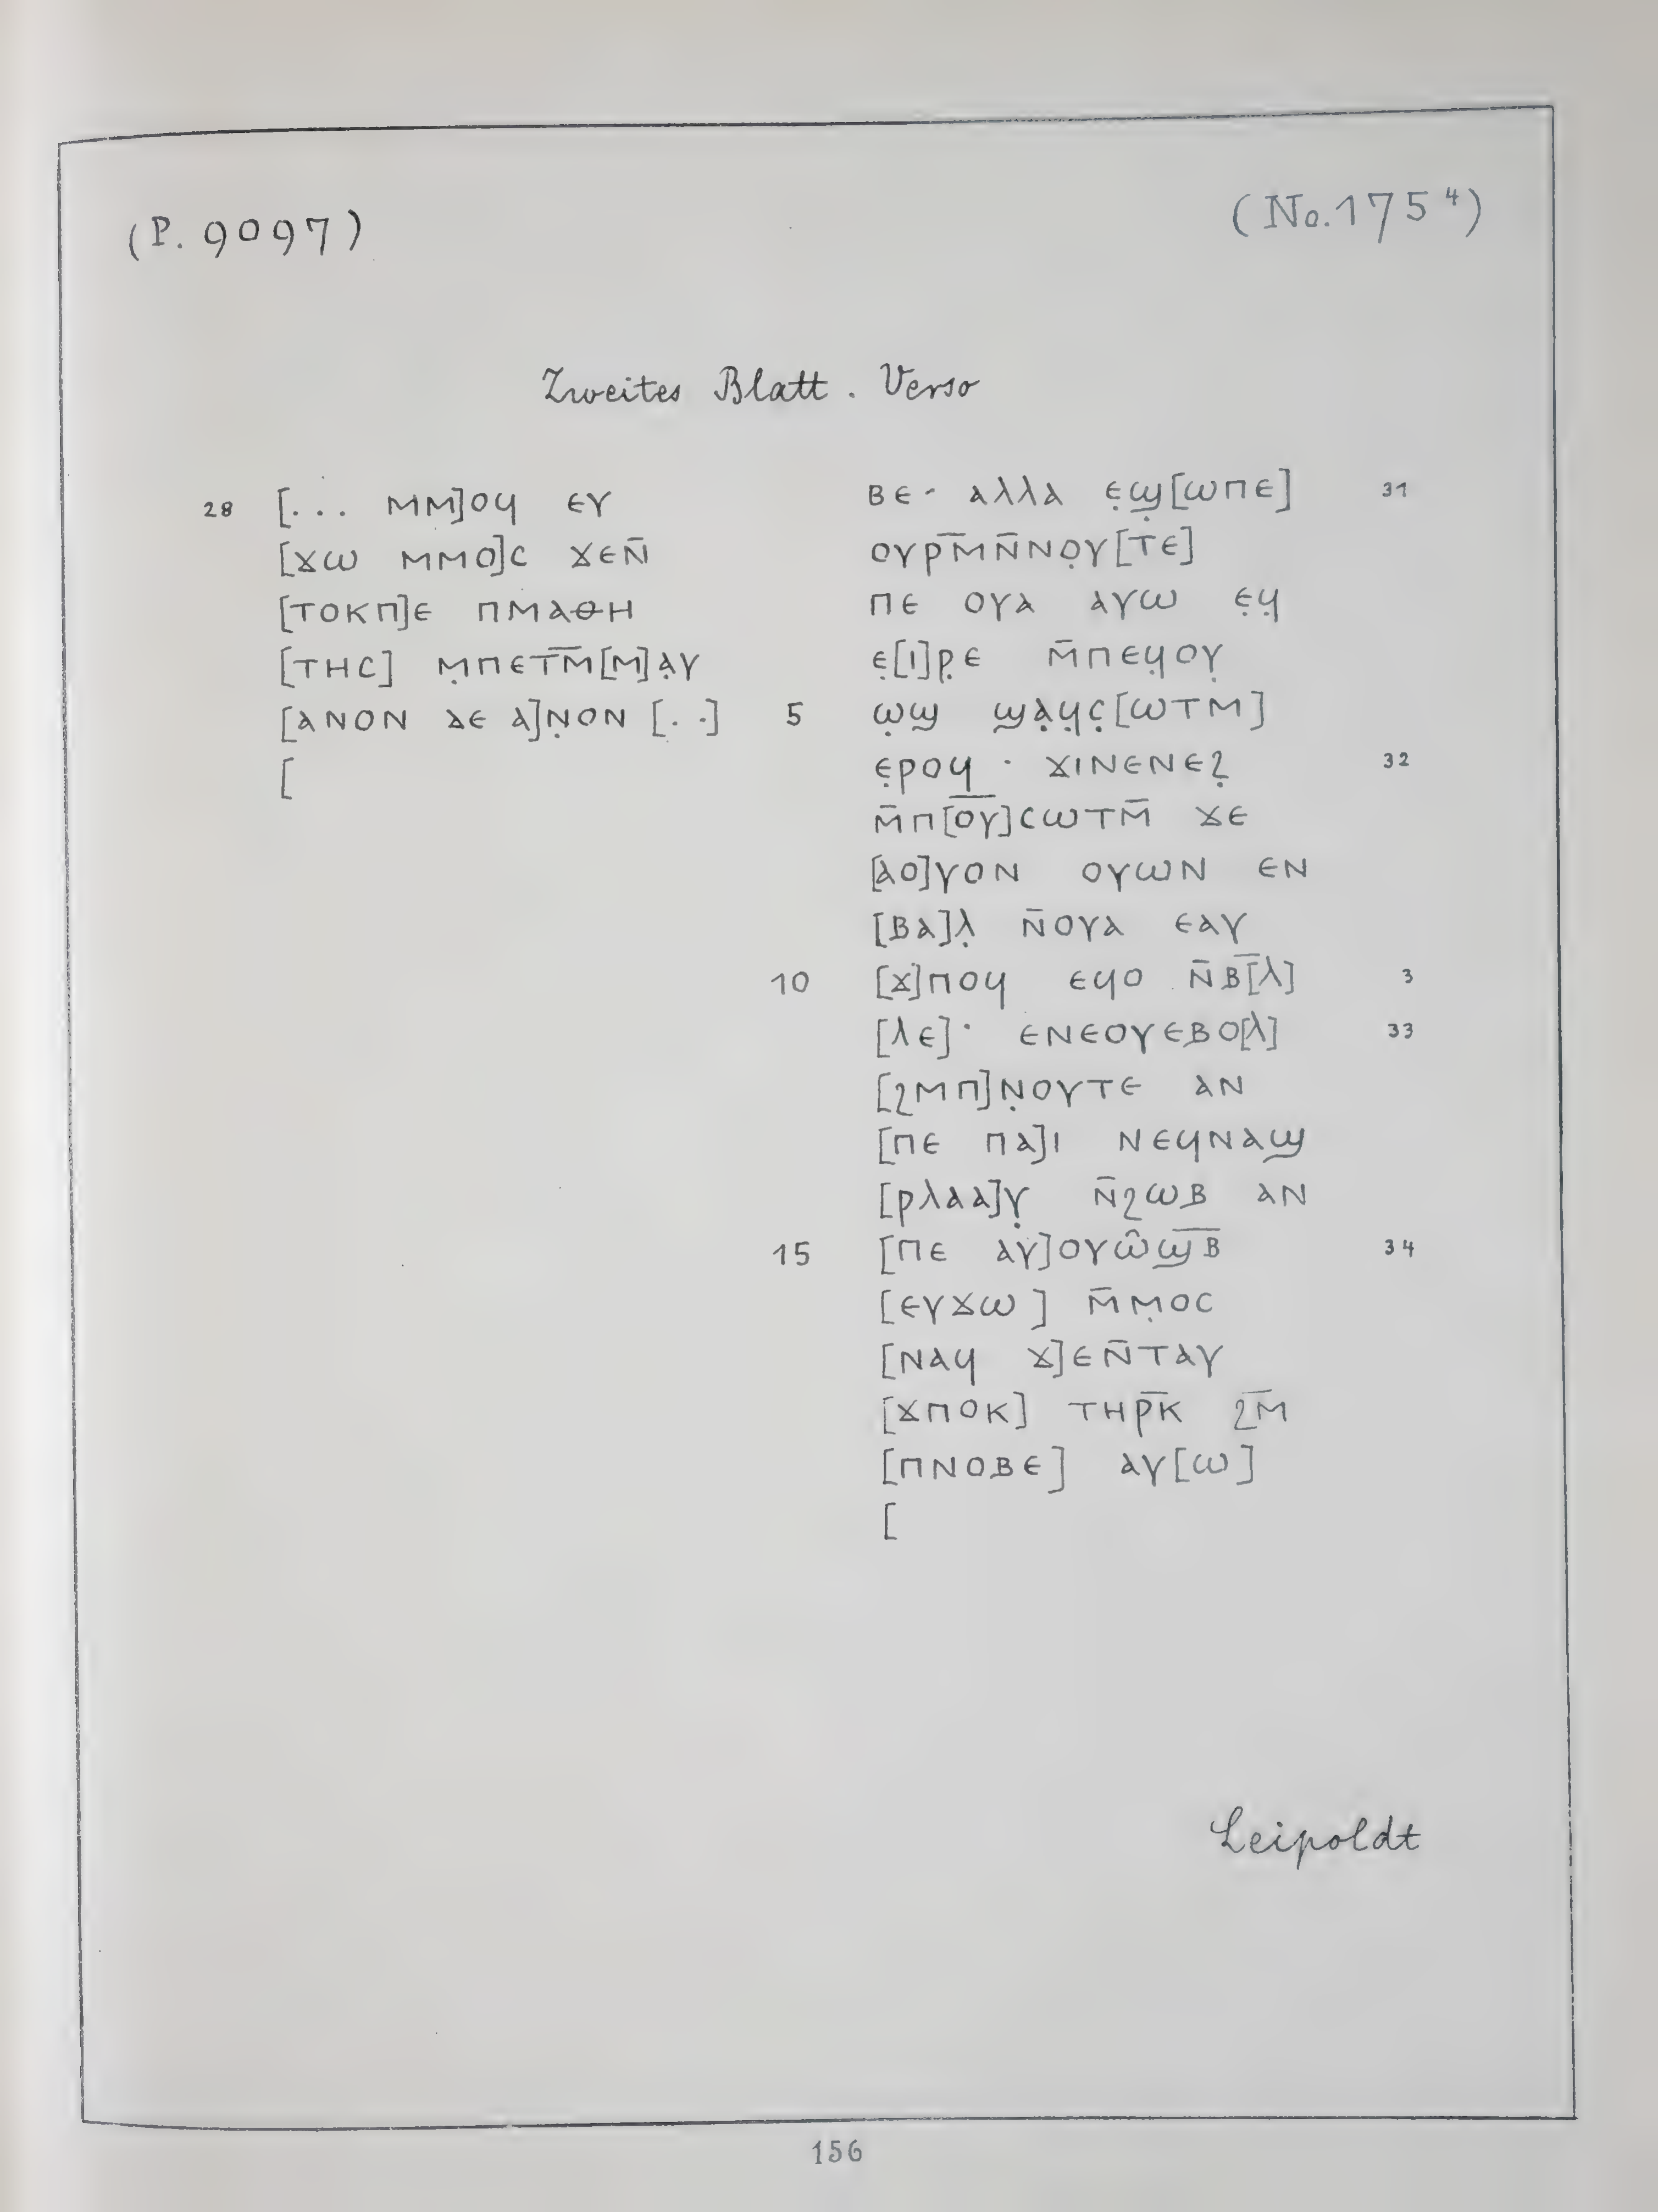 (P. 9097)
(No. 175⁴)
Zweites Blatt. Verso
28 [... ⲙⲙ]ⲟϥ ⲉⲩ
[ϫⲱ ⲙⲙⲟ]ⲥ ϫⲉⲛ̄
[ⲧⲟⲕⲡ]ⲉ ⲡⲙⲁⲑⲏ
[ⲧⲏⲥ] ⲙ̣ⲡⲉⲧⲙ̄[ⲙ]ⲁ̣ⲩ
[ⲁⲛⲟⲛ ⲇⲉ ⲁ]ⲛ̣ⲟⲛ [..]
[
ⲃⲉ· ⲁⲗⲗⲁ ⲉ̣ϣ̣[ⲱⲡⲉ] 31
ⲟⲩⲣⲙ̄ⲛ̄ⲛⲟ̣ⲩ[ⲧⲉ]
ⲡⲉ ⲟⲩⲁ ⲁⲩⲱ ⲉ̣ϥ̣
ⲉ̣[ⲓ]ⲣ̣ⲉ ⲙ̄ⲡⲉϥⲟⲩ̣
5 ⲱ̣ϣ ϣⲁ̣ϥ̣ⲥ̣[ⲱⲧⲙ]
ⲉ̣ⲣⲟϥ · ϫⲓⲛⲉⲛⲉϩ̣ 32
ⲙ̄ⲡ[ⲟ̅ⲩ̅]ⲥⲱⲧⲙ̄ ϫⲉ
[ⲁⲟ]ⲩⲟⲛ ⲟⲩⲱⲛ ⲉⲛ
[ⲃⲁ]ⲗ̣ ⲛ̄ⲟⲩⲁ ⲉⲁⲩ
10 [ϫ]ⲡⲟϥ ⲉϥⲟ ⲛ̄ⲃ̅[ⲗ] 3
[ⲗⲉ]· ⲉⲛⲉⲟⲩⲉⲃⲟ[ⲗ] 33
[ϩⲙⲡ]ⲛ̣ⲟⲩⲧⲉ ⲁⲛ
[ⲡⲉ ⲡⲁ]ⲓ ⲛⲉϥⲛⲁϣ
[ⲣⲗⲁⲁ]ⲩ̣ ⲛ̄ϩⲱⲃ ⲁⲛ
15 [ⲡⲉ ⲁⲩ]ⲟⲩⲱ̂ϣ̅ⲃ̅ 34
[ⲉⲩϫⲱ] ⲙ̄ⲙ̣ⲟⲥ
[ⲛⲁϥ ϫ]ⲉⲛ̄ⲧⲁⲩ
[ϫⲡⲟⲕ] ⲧⲏⲣ̅ⲕ̅ ϩⲙ̄
[ⲡⲛⲟⲃⲉ] ⲁⲩ[ⲱ]
[
Leipoldt
156